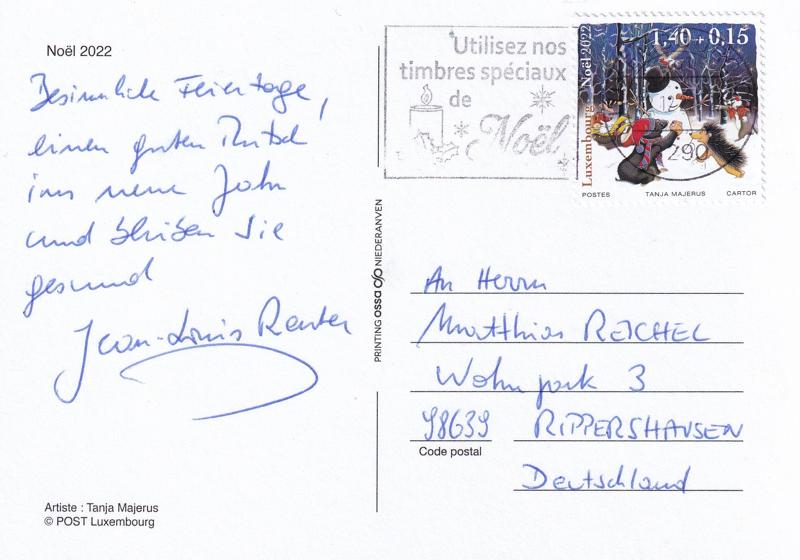 Noël 2022
Besinnliche Feiertage,
einen guten Rutsch
ins neue Jahr
und bleiben Sie
gesund
Jean-Louis Reuter
Artiste : Tanja Majerus
© POST Luxembourg
PRINTING ossa NIEDERANVEN
Utilisez nos
timbres spéciaux
de
Noël
Luxembourg Noël 2022
1,40 + 0,15
290
POSTES TANJA MAJERUS CARTOR
An Herrn
Matthias REICHEL
Wohnpark 3
98639 RIPPERSHAUSEN
Code postal
Deutschland